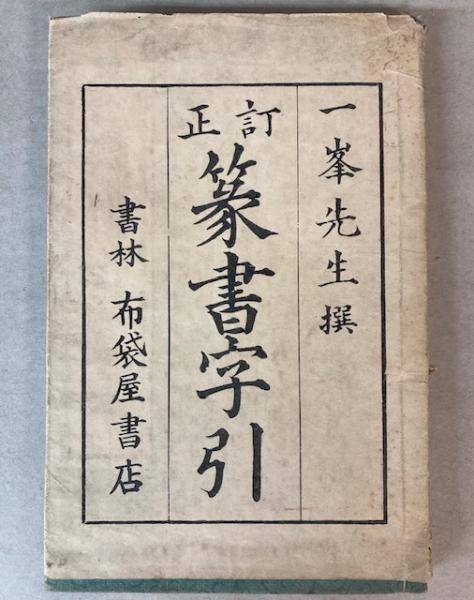 一峯先生撰
訂正
篆書字引
書林 布袋屋書店